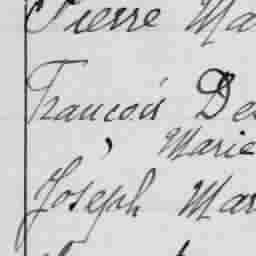 Pierre Ma
Francois De
Marie
Joseph Mar